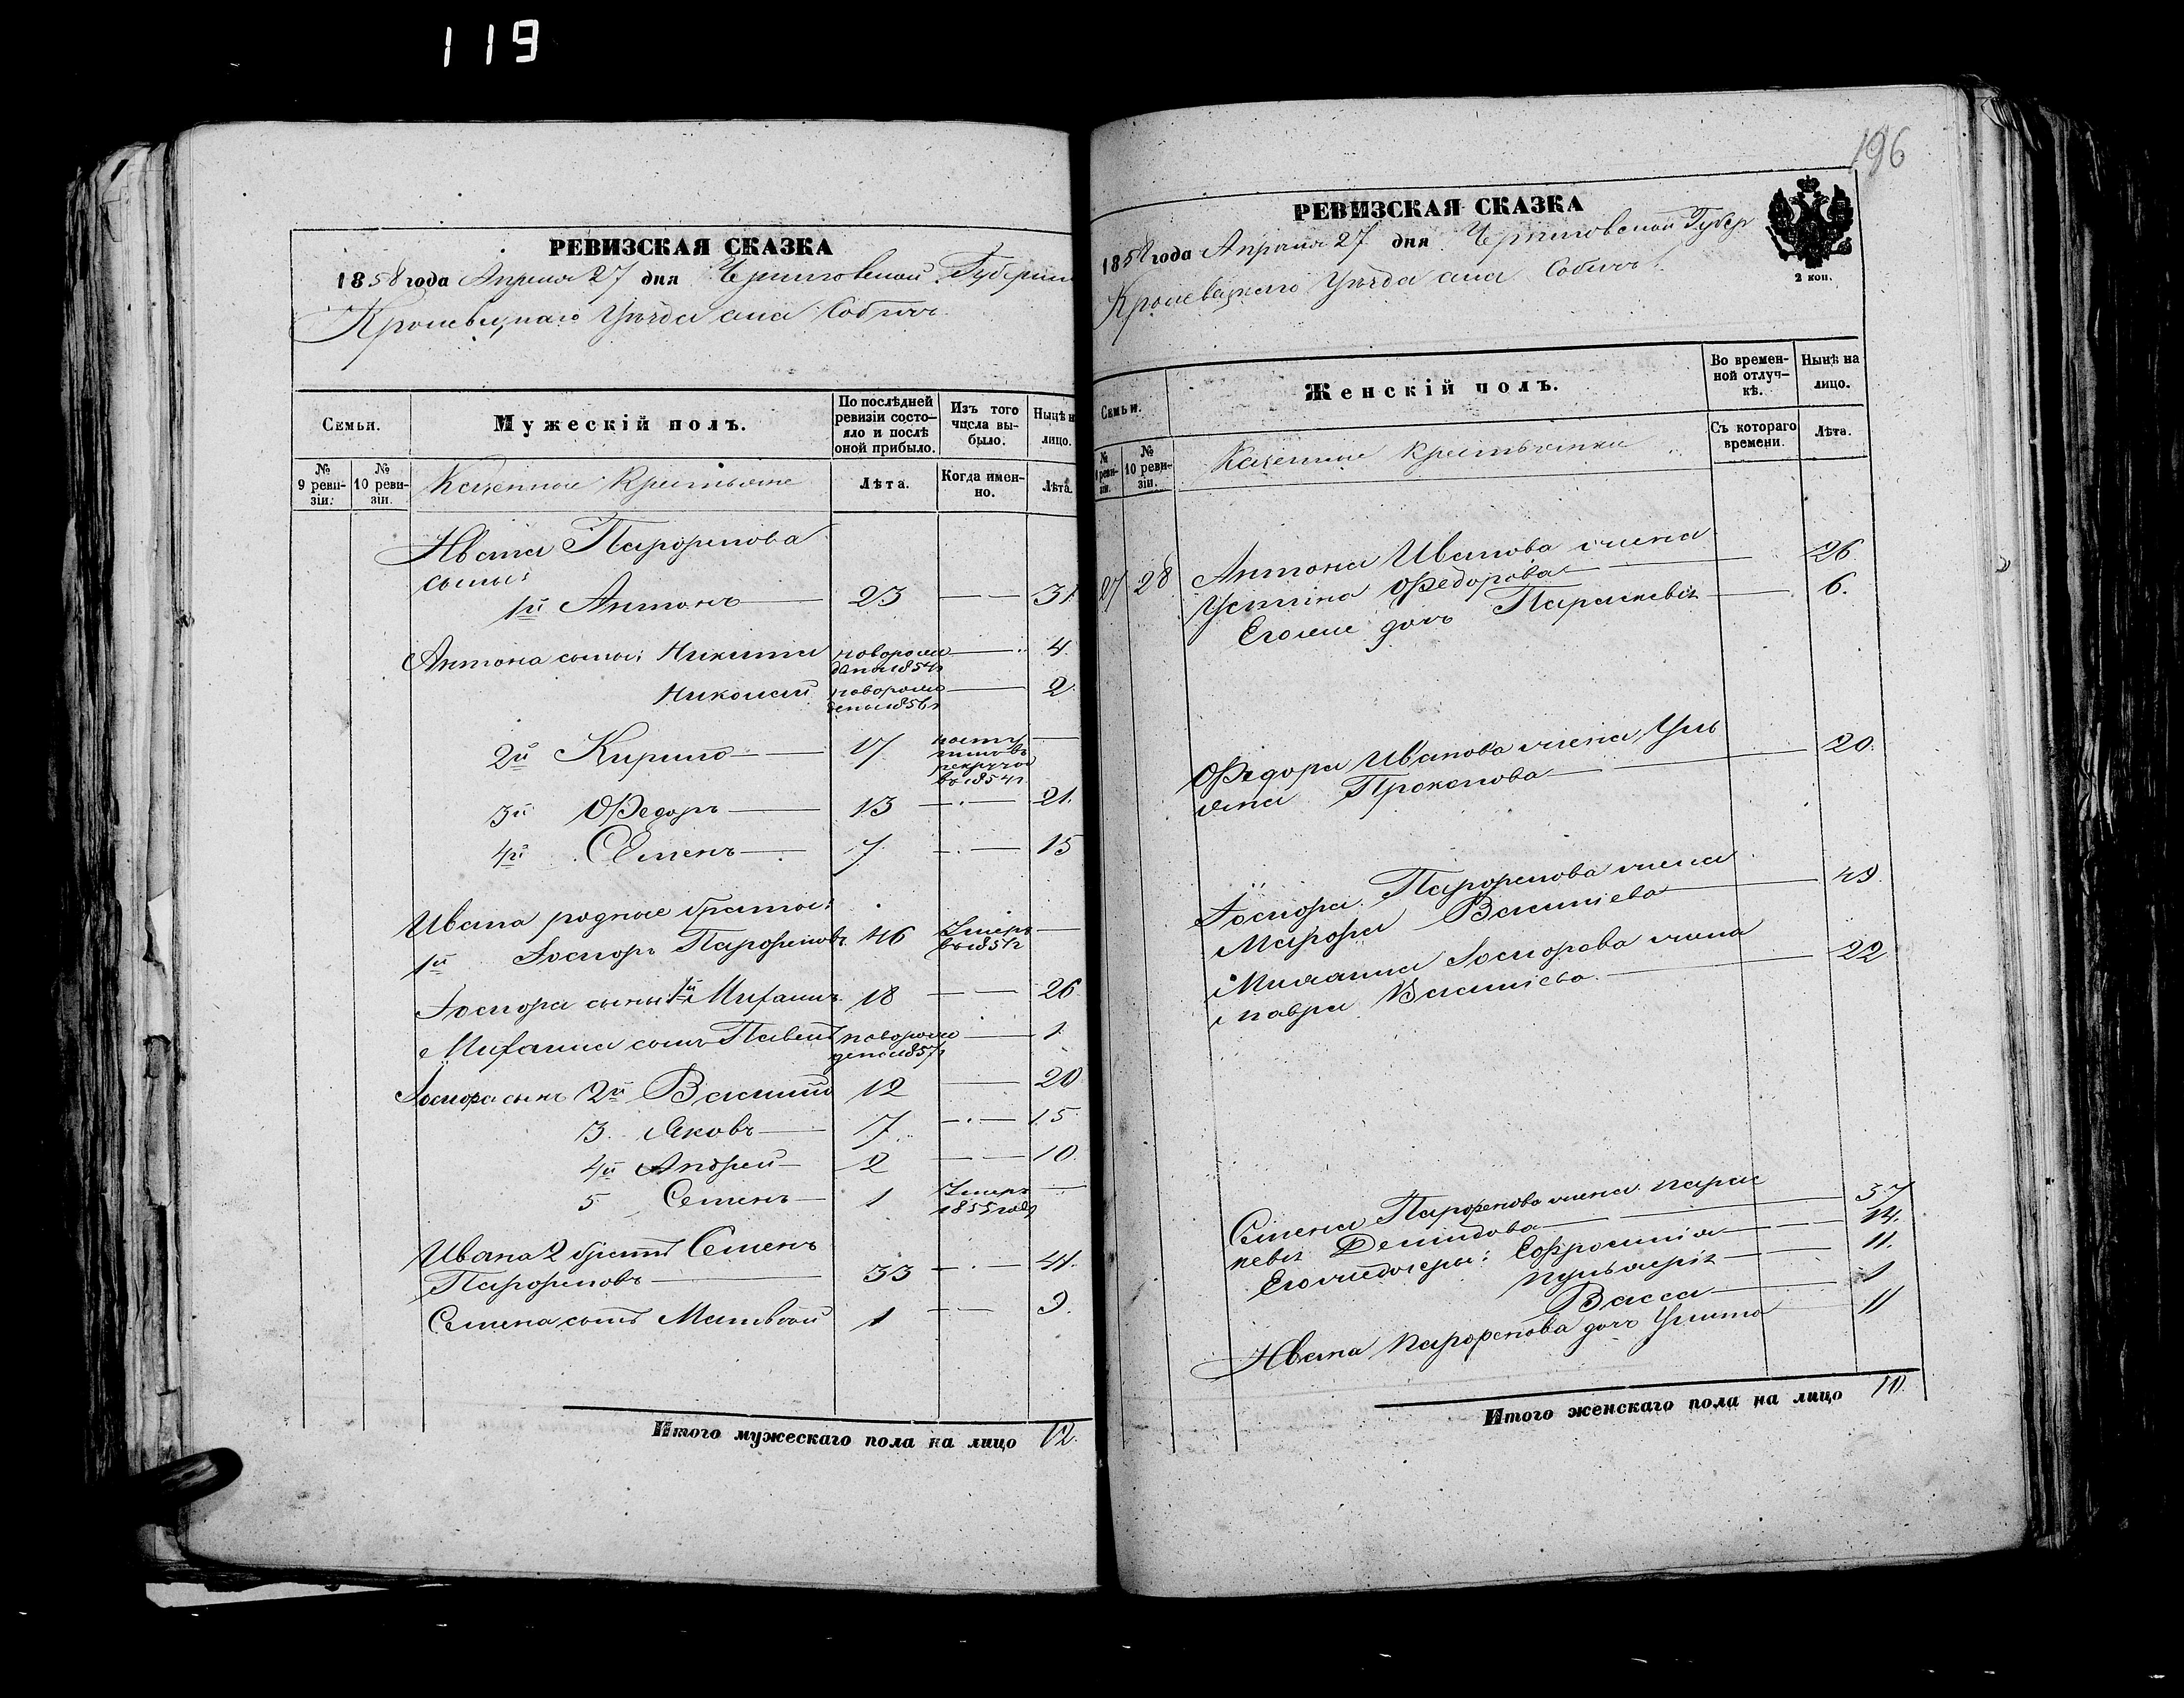 119
РЕВИЗСКАЯ СКАЗКА
1858 года Апреля 27 дня Черниговской Губернии
Кролевецкаго Уѣзда села Собичъ
Семьи.
Мужескій полъ.
По послѣдней ревизіи состо-
яло и послѣ
оной прибыло.
Изъ того
числа вы-
было.
Нынѣ н
лицо.
№
9 реви-
зіи.
№
10 реви-
зіи.
Казенные Крестьяне
Лѣта.
Когда имен-
но.
Лѣта.
Ивана Парфенова
сыны:
1й Антонъ 23 31
Антона сыны: Никита новорож
денъ 1854г 4
Николай новорож
денъ 1856г 2
2й Кирило 17 посту
в
рекруты
въ 1854г
3й Федоръ 13 21.
4й Семенъ 7 15
Ивана родные братья:
1й Іосифъ Парфеновъ 46 Умеръ
въ 185 г
Іосифа сыны 1й Михаилъ 18 26
Михаила сынъ Павелъ новорож
денъ 1857г 1.
Іосифа сынъ 2й Василій 12 20
3. Яковъ 7 15
4й Андрей 2 10.
5 Семенъ 1 Умеръ
1855 года
Ивана 2 братъ Семенъ
Парфеновъ 33 41.
Семена сынъ Матвѣй 1 9.
Итого мужескаго пола на лицо 12.
196
РЕВИЗСКАЯ СКАЗКА
1858 года Апреля 27 дня Черниговской Губер
Кролевецкаго Уѣзда села Собичъ
2 коп.
Семьи.
Женскій полъ.
Во времен-
ной отлуч-
кѣ.
Нынѣ на
лицо.
№
реви-
зіи.
№
10 реви-
зіи.
Казенные крестьянки
Съ котораго
времени.
Лѣта.
27 28 Антона Иванова жена
Устина Федорова 26
Его же дочь Параскевія 6.
Федора Иванова жена Уль
яна Прокопова 20.
Іосифа Парфенова жена
Марфа Васильева 49.
Михаила Іосифова жена
Мавра Васильева 22
Семена Парфенова жена Парас
кевія Демидова 37
Его же дочери: Ефросинія 14.
Пульхерія 11.
Васса 1
Ивана Парфенова дочь 11
Итого женскаго пола на лицо 10.